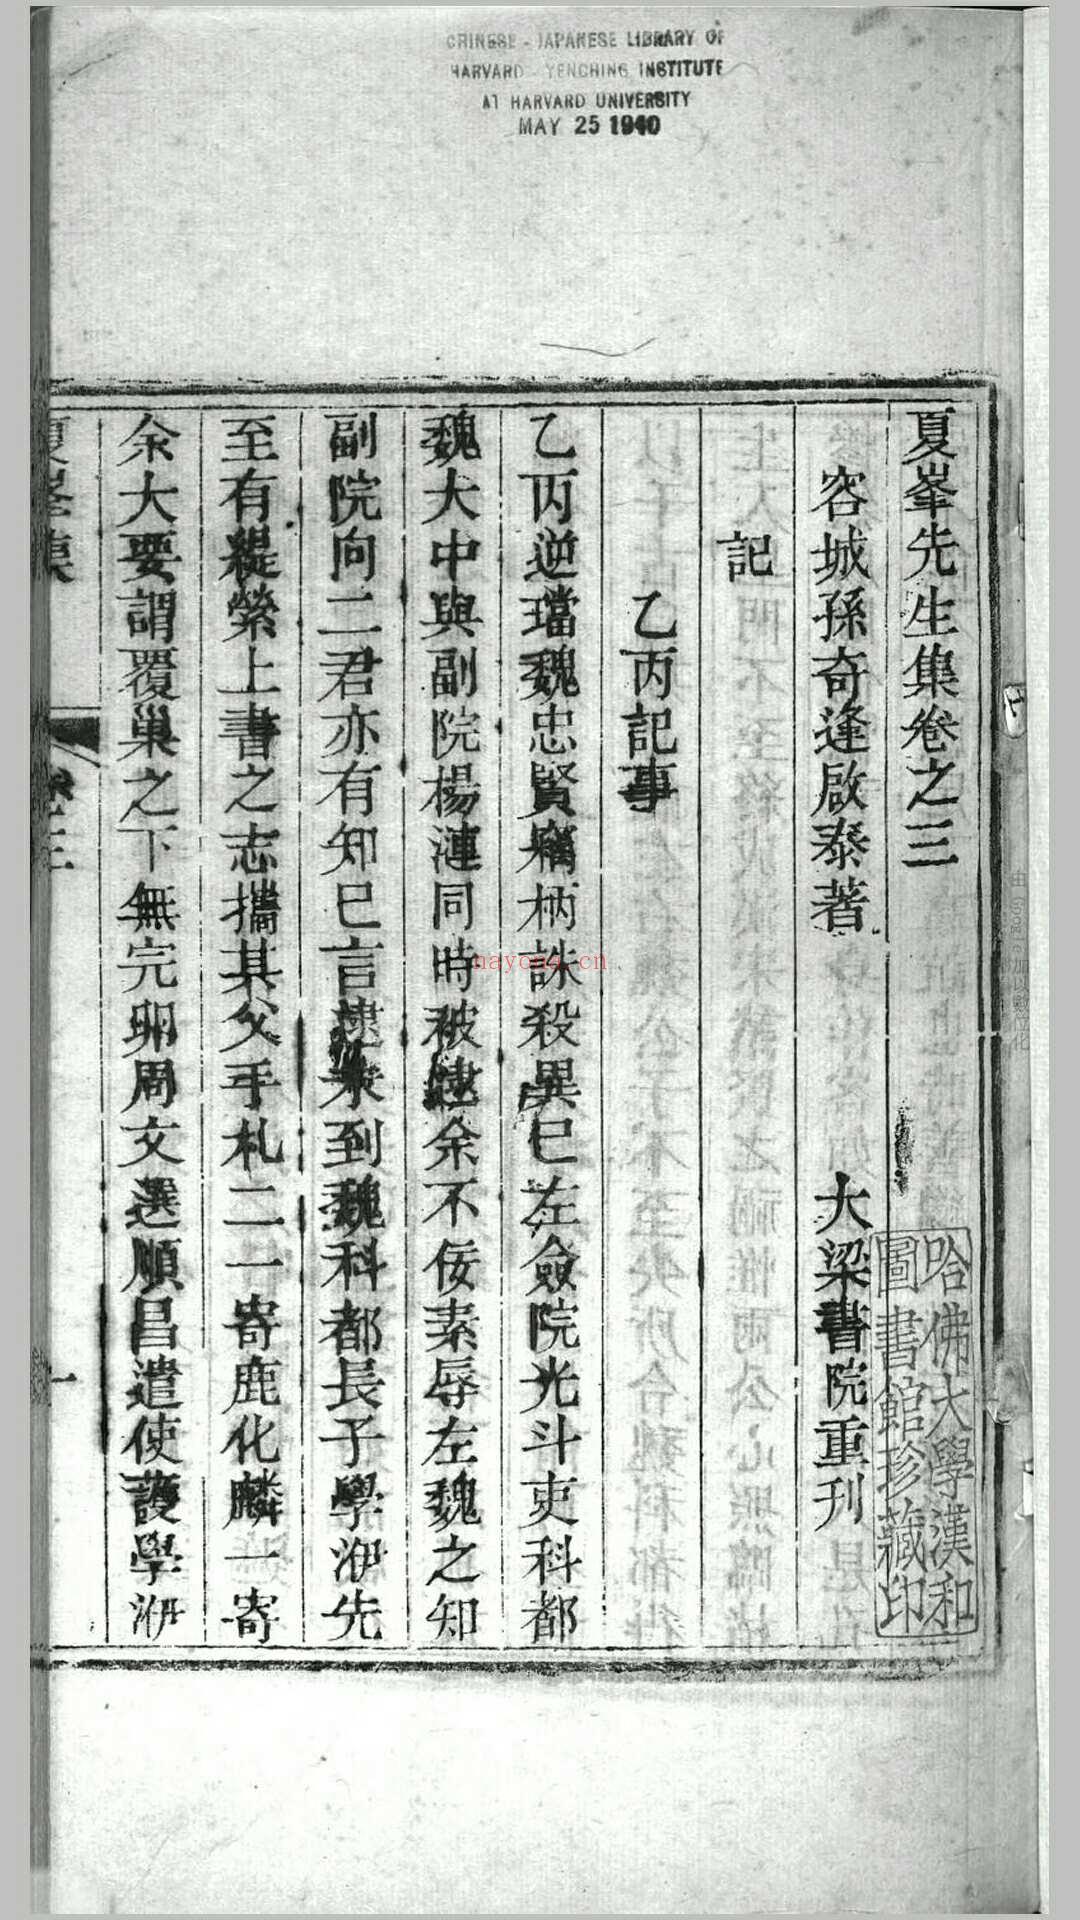 CHINESE - JAPANESE LIBRARY OF
HARVARD - YENCHING INSTITUTE
AT HARVARD UNIVERSITY
MAY 25 1940
夏峯先生集卷之三
容城孫奇逢啟泰著 大梁書院重刊
記
乙丙記事
乙丙逆璫魏忠賢竊柄誅殺異己左僉院光斗吏科都
魏大中與副院楊漣同時被逮余不佞素辱左魏之知
副院向二君亦有知己言逮未到魏科都長子學洢先
至有緹縈上書之志攜其父手札二一寄鹿化麟一寄
余大要謂覆巢之下無完卵周文選順昌遣使護學洢
夏峯集
卷三
一
哈佛大學漢和
圖書館珍藏印
nayona.cn